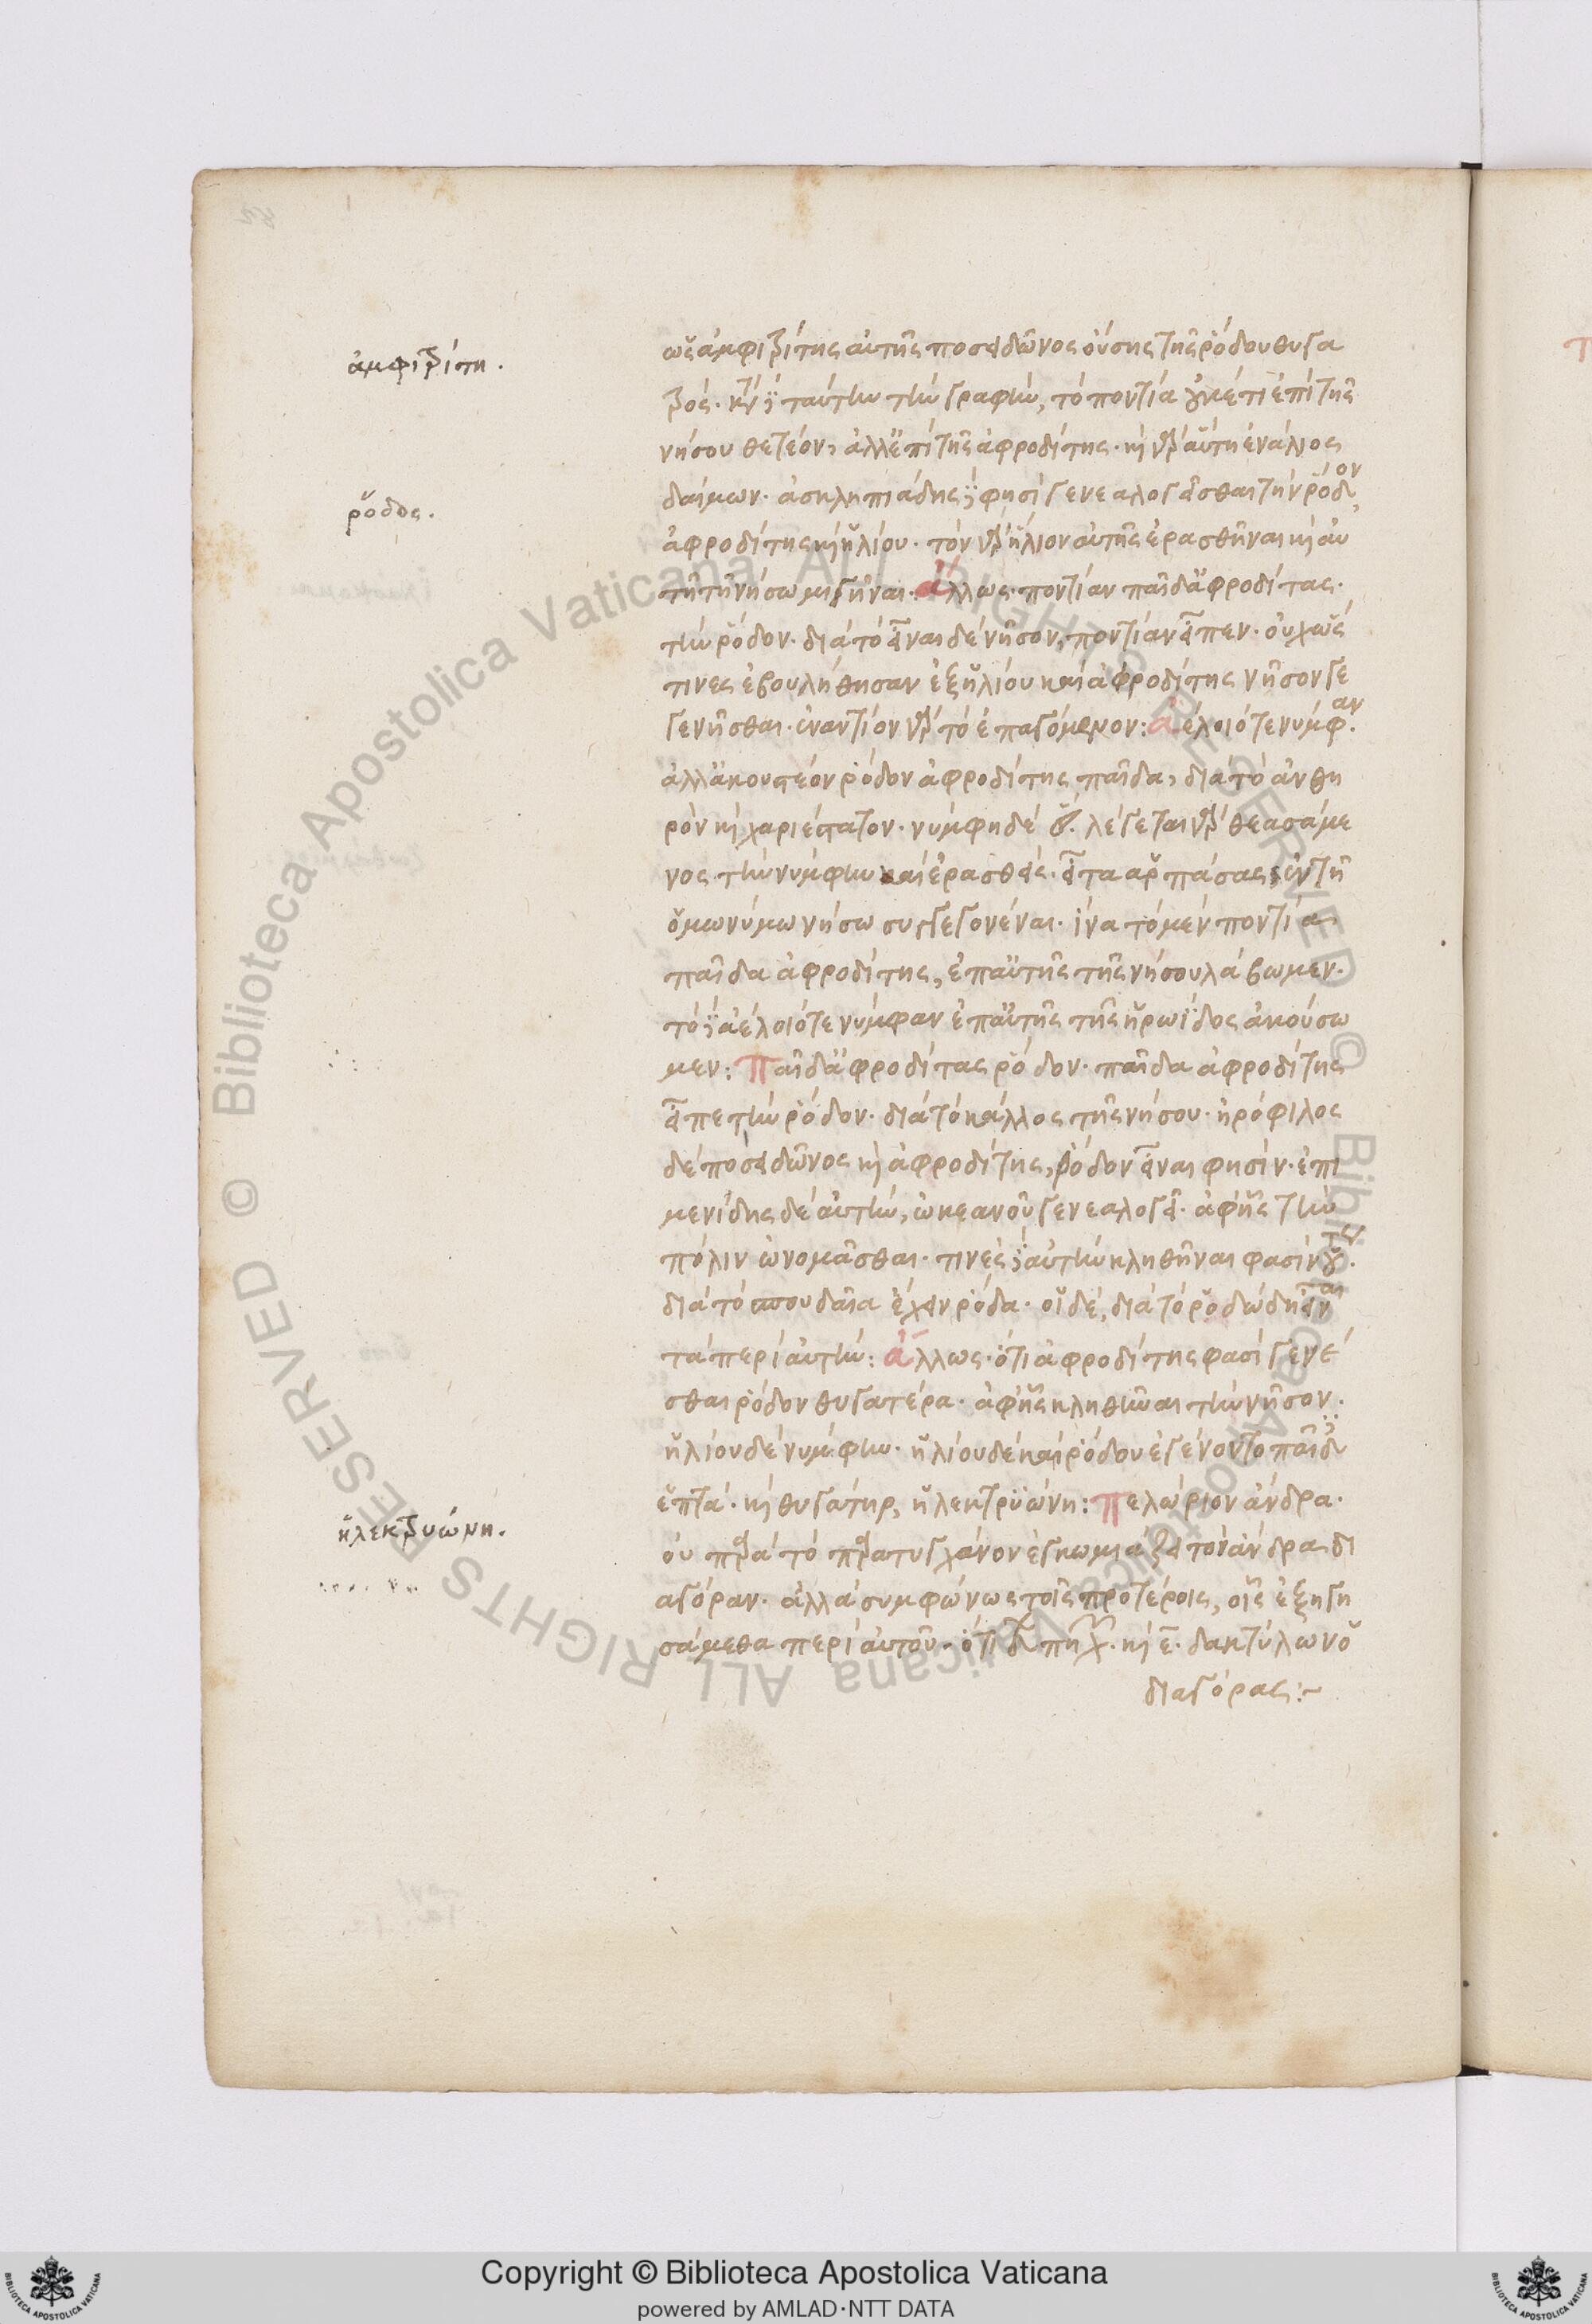 ἀμφιτρίτη.
ῥόδος.
ἠλεκτρυώνη.
ὡς ἀμφιτρίτης αὐτῆς ποσειδῶνος οὔσης τῆς ῥόδου θυγα
τρός. κατὰ δὲ ταύτην τὴν γραφὴν, τὸ ποντία οὐκέτι ἐπὶ τῆς
νήσου θετέον, ἀλλ' ἐπὶ τῆς ἀφροδίτης. καὶ γὰρ αὕτη ἐνάλιος
δαίμων. ἀσκληπιάδης δὲ φησὶ γενεαλογεῖσθαι τὴν ῥόδον
ἀφροδίτης καὶ ἡλίου. τὸν γὰρ ἥλιον αὐτῆς ἐρασθῆναι καὶ αὐ
τῇ τῇ νήσω μιγῆναι. ἄλλως. ποντίαν παῖδ' ἀφροδίτας.
τὴν ῥόδον. διὰ τὸ εἶναι δὲ νῆσον, ποντίαν εἶπεν. οὐχ ὥς
τινες ἐβουλήθησαν ἐξ ἡλίου καὶ ἀφροδίτης νῆσον γε
γενῆσθαι. ἐναντίον γὰρ τὸ ἐπαγόμενον: ἀελοιότε νύμφαν.
ἀλλ' ἀκουστέον ῥόδον ἀφροδίτης παῖδα, διὰ τὸ ἀνθη
ρὸν καὶ χαριέστατον. νύμφη δὲ λέγεται γὰρ θεασάμε
νος τὴν νύμφην καὶ ἐρασθείς. εἶτα ἁρπάσας, ἐν τῇ
ὁμωνύμω νήσω συγγεγονέναι. ἵνα τὸ μὲν ποντία
παῖδα ἀφροδίτης, ἐπ' αὐτῆς τῆς νήσου λάβωμεν.
τὸ δὲ ἀελοιότε νύμφαν ἐπ' αὐτῆς τῆς ἡρωΐδος ἀκούσω
μεν: Παῖδ' ἀφροδίτας ῥόδον. παῖδα ἀφροδίτης
εἶπε τὴν ῥόδον. διὰ τὸ κάλλος τῆς νήσου. ἡρόφιλος
δὲ ποσειδῶνος καὶ ἀφροδίτης, ῥόδον εἶναι φησίν. ἐπι
μενίδης δὲ αὐτὴν, ὠκεανοῦ γενεαλογεῖ. ἀφ' ἧς τὴν
πόλιν ὠνομᾶσθαι. τινὲς δὲ αὐτὴν κληθῆναι φασὶν οὕτως.
διὰ τὸ σπουδαῖα ἔχειν ῥόδα. οἱ δὲ, διὰ τὸ ῥοδώδη εἶναι
τὰ περὶ αὐτὴν: ἄλλως. ὅτι ἀφροδίτης φασὶ γενέ
σθαι ῥόδον θυγατέρα. ἀφ' ἧς κληθῆναι τὴν νῆσον.
ἡλίου δὲ νύμφην. ἡλίου δὲ καὶ ῥόδου ἐγένοντο παῖδες
ἑπτά. καὶ θυγάτηρ, ἠλεκτρυώνη: Πελώριον ἄνδρα.
οὐ παρὰ τὸ παρατυγχάνον ἐγκωμιάζει τὸν ἄνδρα δι
αγόραν. ἀλλὰ συμφώνως τοῖς προτέροις, οἷς ἐξηγη
σάμεθα περὶ αὐτοῦ. ὅτι δ πηχῶν. καὶ ε. δακτύλων ὁ
διαγόρας:~
Copyright © Biblioteca Apostolica Vaticana
powered by AMLAD·NTT DATA